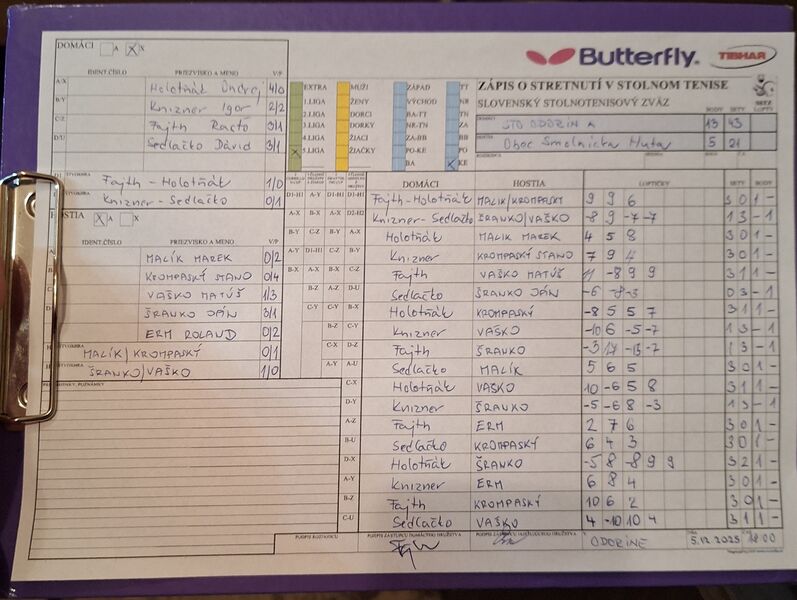 DOMÁCI A X
Butterfly. TIBHAR
IDENT.ČÍSLO PRIEZVISKO A MENO V/P
A/X Holotňák Ondrej 4/0
B/Y Knizner Igor 2/2
C/Z Fajth Rasťo 3/1
D/U Sedlačko Dávid 3/1
Fajth - Holotňák 1/0
Knizner - Sedlačko 0/1
HOSTIA A X
IDENT.ČÍSLO PRIEZVISKO A MENO V/P
MALÍK MAREK 0/2
KROMPASKÝ STANO 0/4
VAŠKO MATÚŠ 1/3
ŠRANKO JÁN 3/1
ERM ROLAND 0/2
MALÍK/KROMPASKÝ 0/1
ŠRANKO/VAŠKO 1/0
EXTRA MUŽI ZÁPAD TT
1.LIGA ŽENY VÝCHOD NR
2.LIGA DORCI BA-TT TN
3.LIGA DORKY NR-TN ZA
4.LIGA ŽIACI ZA-BB
5.LIGA ŽIAČKY PO-KE PO
BA KE
ZÁPIS O STRETNUTÍ V STOLNOM TENISE
SLOVENSKÝ STOLNOTENISOVÝ ZVÄZ
BODY SETY
STO ODORÍN A 13 43
Obec Smolnícka Huta 5 21
DOMÁCI HOSTIA LOPTIČKY SETY BODY
Fajth-Holotňák MALIK/KROMPASKÝ 9 9 6 3 0 1 -
Knizner-Sedlačko ŠRANKO/VAŠKO -8 9 -7 -7 1 3 - 1
Holotňák MALIK MAREK 4 5 8 3 0 1 -
Knizner KROMPASKÝ STANO 7 9 4 3 0 1 -
Fajth VAŠKO MATÚŠ 11 -8 9 9 3 1 1 -
Sedlačko ŠRANKO JÁN -6 -8 -3 0 3 - 1
Holotňák KROMPASKÝ -8 5 5 7 3 1 1 -
Knizner VAŠKO -10 6 -5 -7 1 3 - 1
Fajth ŠRANKO -3 17 -13 -7 1 3 - 1
Sedlačko MALÍK 5 6 5 3 0 1 -
Holotňák VAŠKO 10 -6 5 8 3 1 1 -
Knizner ŠRANKO -5 -6 8 -3 1 3 - 1
Fajth ERM 2 7 6 3 0 1 -
Sedlačko KROMPASKÝ 6 4 3 3 0 1 -
Holotňák ŠRANKO -5 8 -8 9 9 3 2 1 -
Knizner ERM 6 8 4 3 0 1 -
Fajth KROMPASKÝ 10 6 2 3 0 1 -
Sedlačko VAŠKO 4 -10 10 4 3 1 1 -
PODPIS ROZHODCU PODPIS ZÁSTUPCU DOMÁCEHO DRUŽSTVA PODPIS ZÁSTUPCU HOSŤUJÚCEHO DRUŽSTVA
ODORÍNE 5.12.2025 18:00